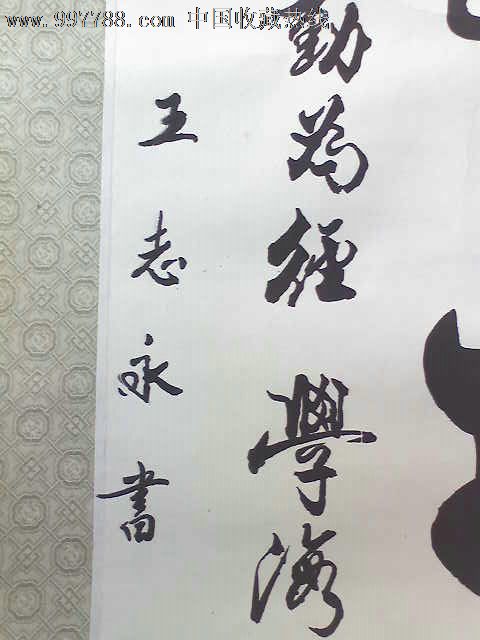 www.997788.com 中国收藏热线
勤為徑學海
王志永書